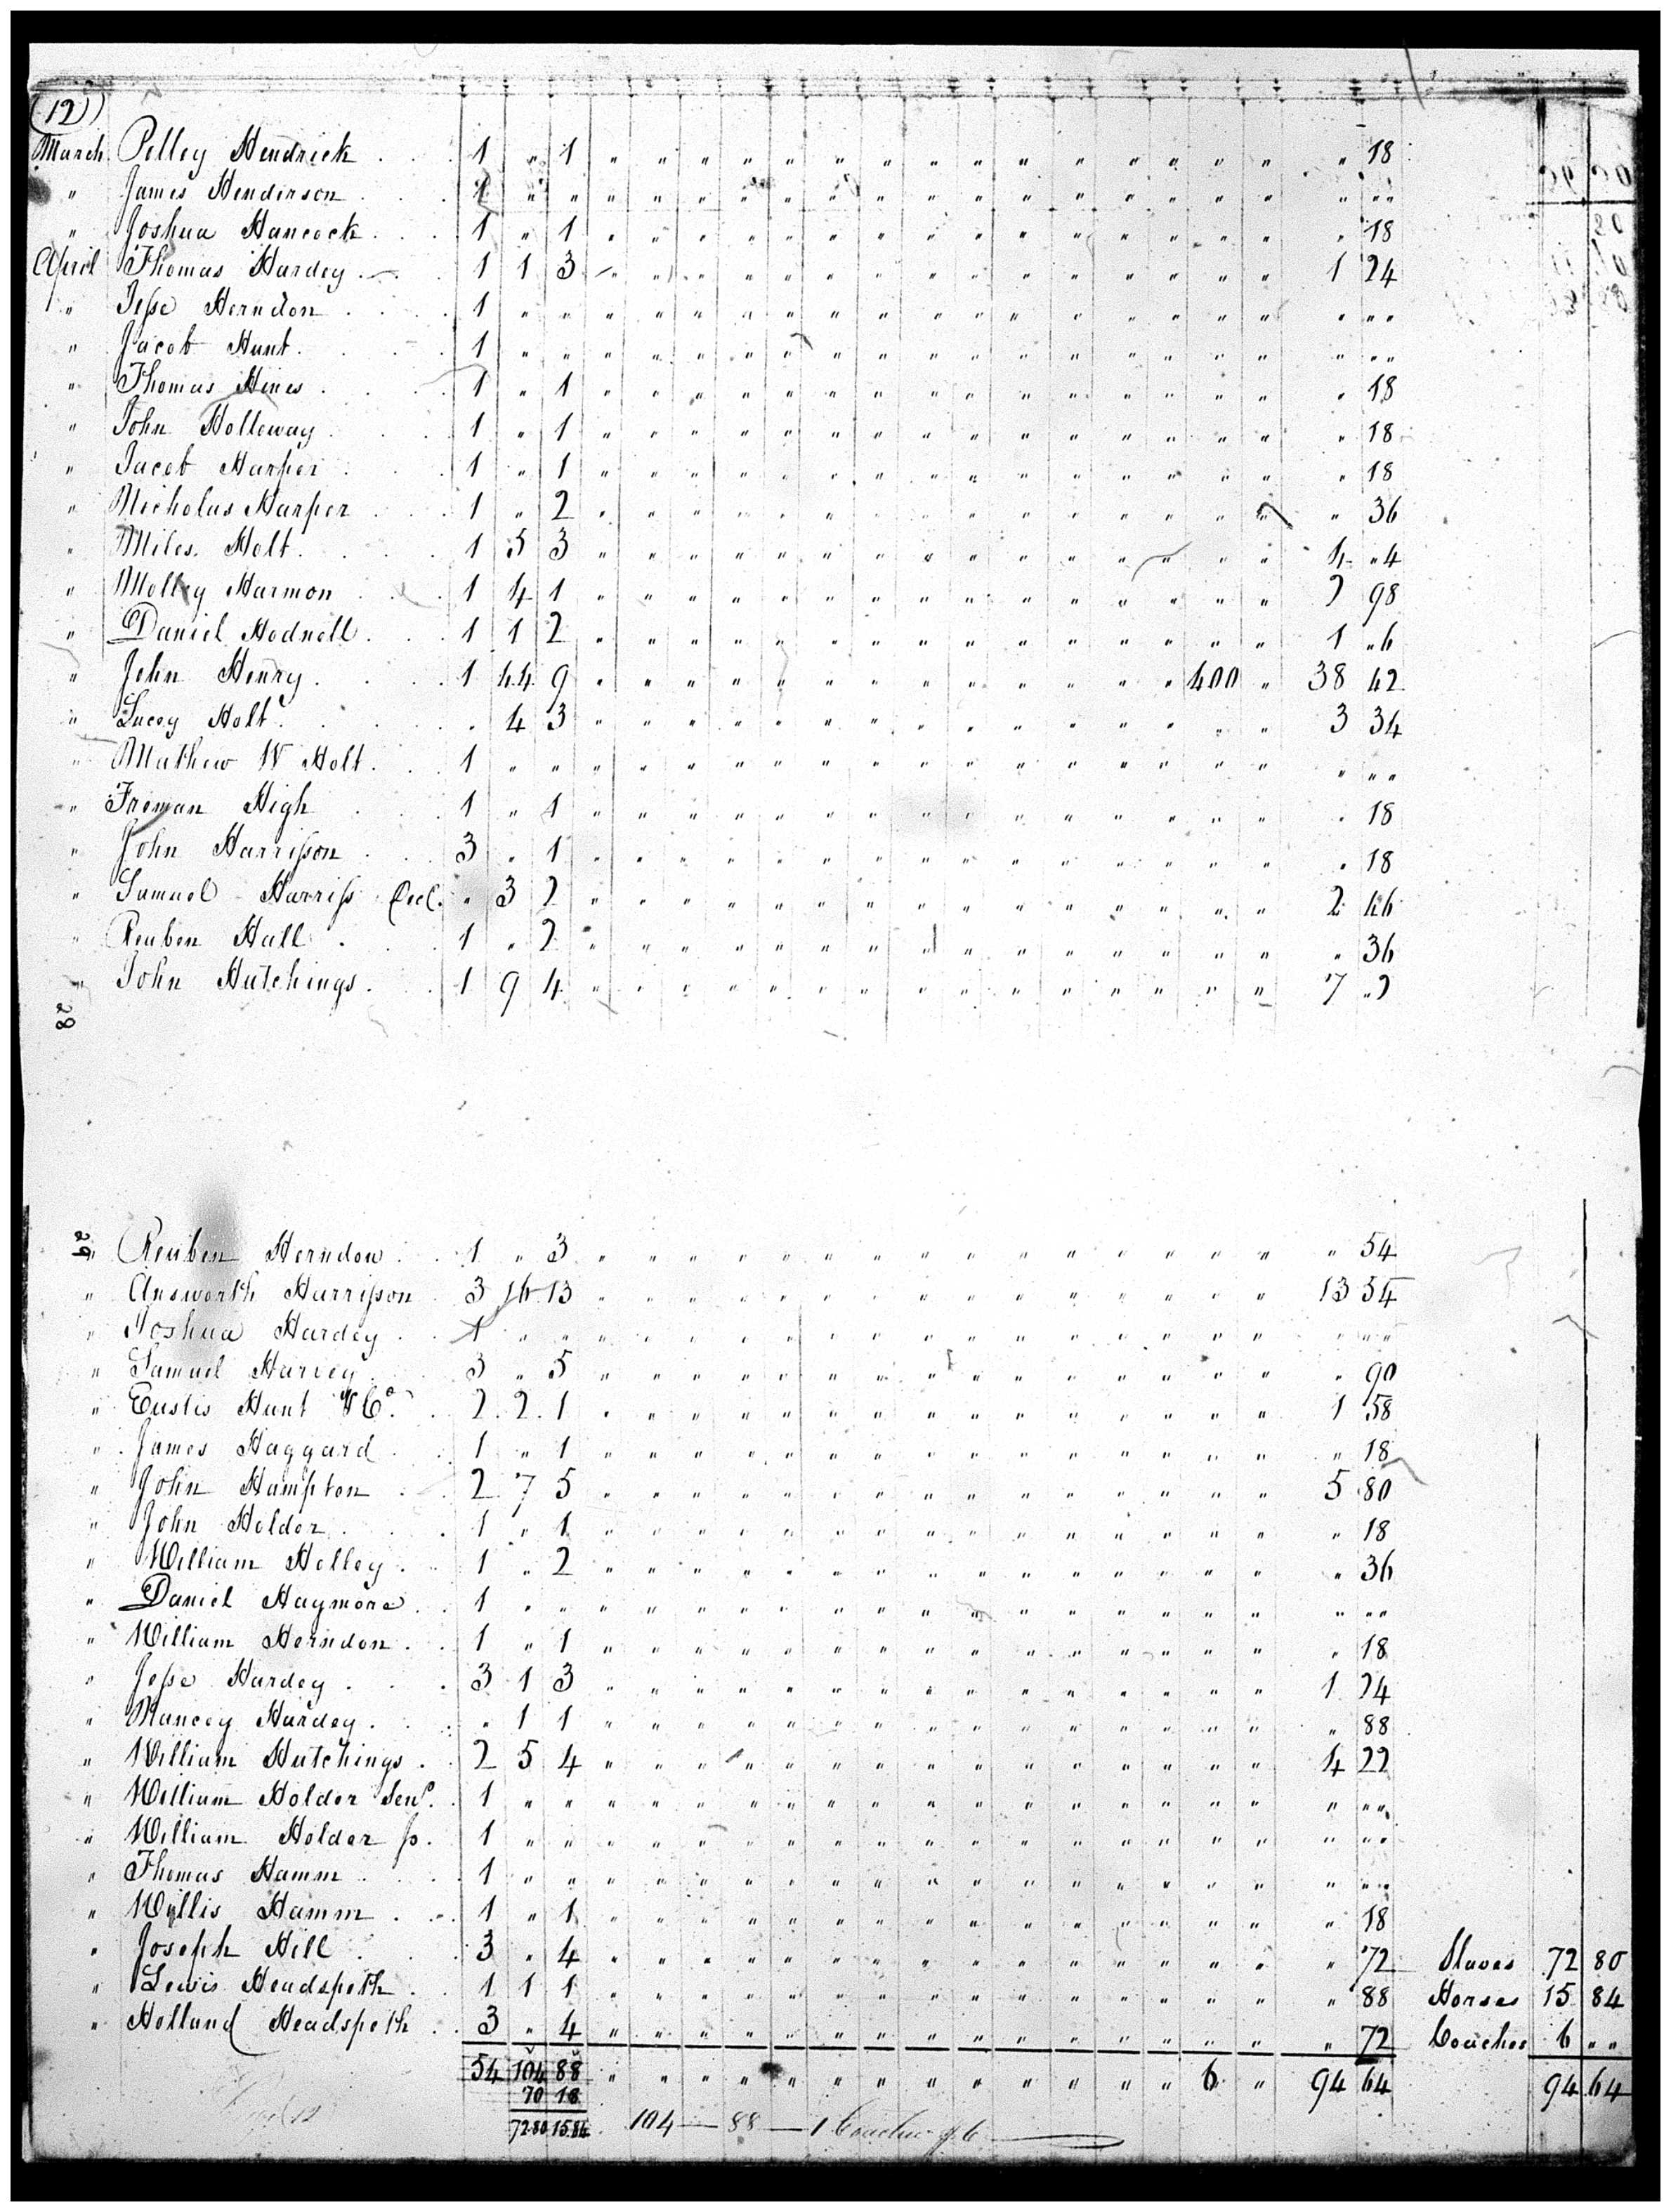 (12)
March Polley Hendrick . . . 1 " 1 " " " " " " " " " " " " " " " " 18
" James Henderson . . . 1 " " " " " " " " " " " " " " " " " " " "
" Joshua Hancock . . . 1 " 1 " " " " " " " " " " " " " " " " 18
April Thomas Hardey . . 1 1 3 " " " " " " " " " " " " " " " 1 24
" Jesse Herndon . . . 1 " " " " " " " " " " " " " " " " " " " "
" Jacob Hunt . . . 1 " " " " " " " " " " " " " " " " " " " "
" Thomas Hines . . . 1 " 1 " " " " " " " " " " " " " " " " 18
" John Holloway . . . 1 " 1 " " " " " " " " " " " " " " " " 18
" Jacob Harper . . . 1 " 1 " " " " " " " " " " " " " " " " 18
" Nicholas Harper . . . 1 " 2 " " " " " " " " " " " " " " " " 36
" Miles Holt . . . 1 5 3 " " " " " " " " " " " " " " " 4 "4
" Molley Harmon . . . 1 4 1 " " " " " " " " " " " " " " " 2 98
" Daniel Hodnell . . . 1 1 2 " " " " " " " " " " " " " " " 1 "6
" John Henry . . . 1 44 9 " " " " " " " " " " " " " 400 " 38 42
" Lucey Holt . . . " 4 3 " " " " " " " " " " " " " " " 3 34
" Mathew W Holt . . . 1 " " " " " " " " " " " " " " " " " " " "
" Freman High . . . 1 " 1 " " " " " " " " " " " " " " " " 18
" John Harrisson . . . 3 " 1 " " " " " " " " " " " " " " " " 18
" Samuel Harriss Decd. " 3 2 " " " " " " " " " " " " " " " 2 46
" Reuben Hall . . . 1 " 2 " " " " " " " " " " " " " " " " 36
" John Hutchings . . . 1 9 4 " " " " " " " " " " " " " " " 7 "2
28
29
" Reuben Herndon . . 1 " 3 " " " " " " " " " " " " " " " " 54
" Answorth Harrisson 3 16 13 " " " " " " " " " " " " " " " 13 54
" Joshua Hardey . . 1 " " " " " " " " " " " " " " " " " " " "
" Samuel Harvey . . 3 " 5 " " " " " " " " " " " " " " " " 90
" Eustis Hunt & Co. . 2 2 1 " " " " " " " " " " " " " " " 1 58
" James Haggard . . 1 " 1 " " " " " " " " " " " " " " " " 18
" John Hampton . . 2 7 5 " " " " " " " " " " " " " " " 5 80
" John Holder . . . 1 " 1 " " " " " " " " " " " " " " " " 18
" William Holley . . 1 " 2 " " " " " " " " " " " " " " " " 36
" Daniel Haymore . . 1 " " " " " " " " " " " " " " " " " " " "
" William Herndon . . 1 " 1 " " " " " " " " " " " " " " " " 18
" Jesse Hardey . . . 3 1 3 " " " " " " " " " " " " " " " 1 24
" Nancey Hardey . . . " 1 1 " " " " " " " " " " " " " " " " 88
" William Hutchings . . 2 5 4 " " " " " " " " " " " " " " " 4 22
" William Holder Senr. . 1 " " " " " " " " " " " " " " " " " " " "
" William Holder Jr. . 1 " " " " " " " " " " " " " " " " " " " "
" Thomas Hamm . . . 1 " " " " " " " " " " " " " " " " " " " "
" Wyllis Hamm . . . 1 " 1 " " " " " " " " " " " " " " " " 18
" Joseph Hill . . . 3 " 4 " " " " " " " " " " " " " " " " 72 Slaves 72 80
" Lewis Headspeth . . 1 1 1 " " " " " " " " " " " " " " " " 88 Horses 15 84
" Holland Headspeth . . 3 " 4 " " " " " " " " " " " " " " " " 72 Coaches 6 " "
54 104 88 " " " " " " " " " " " " " 6 " 94 64 94 64
70 18
72.80 15.84 104 — 88 — 1 Coache of 6